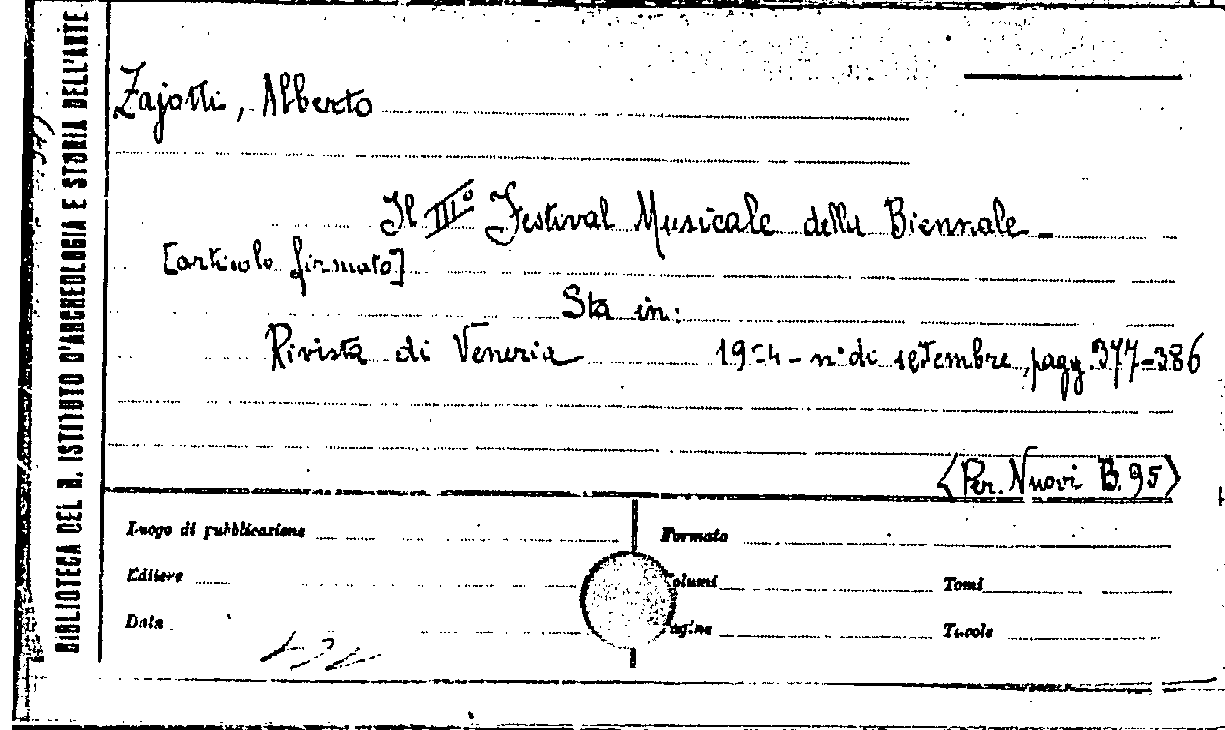 BIBLIOTECA DEL R. ISTITUTO D'ARCHEOLOGIA E STORIA DELL'ARTE
Zajotti, Alberto
Il III° Festival Musicale della Biennale
[articolo firmato]
Sta in:
Rivista di Venezia n° di settembre, pagg. 377-386
<Per. Nuovi B.95>
Luogo di pubblicazione Formato
Editore Volumi Tomi
Data Pagine Tavole